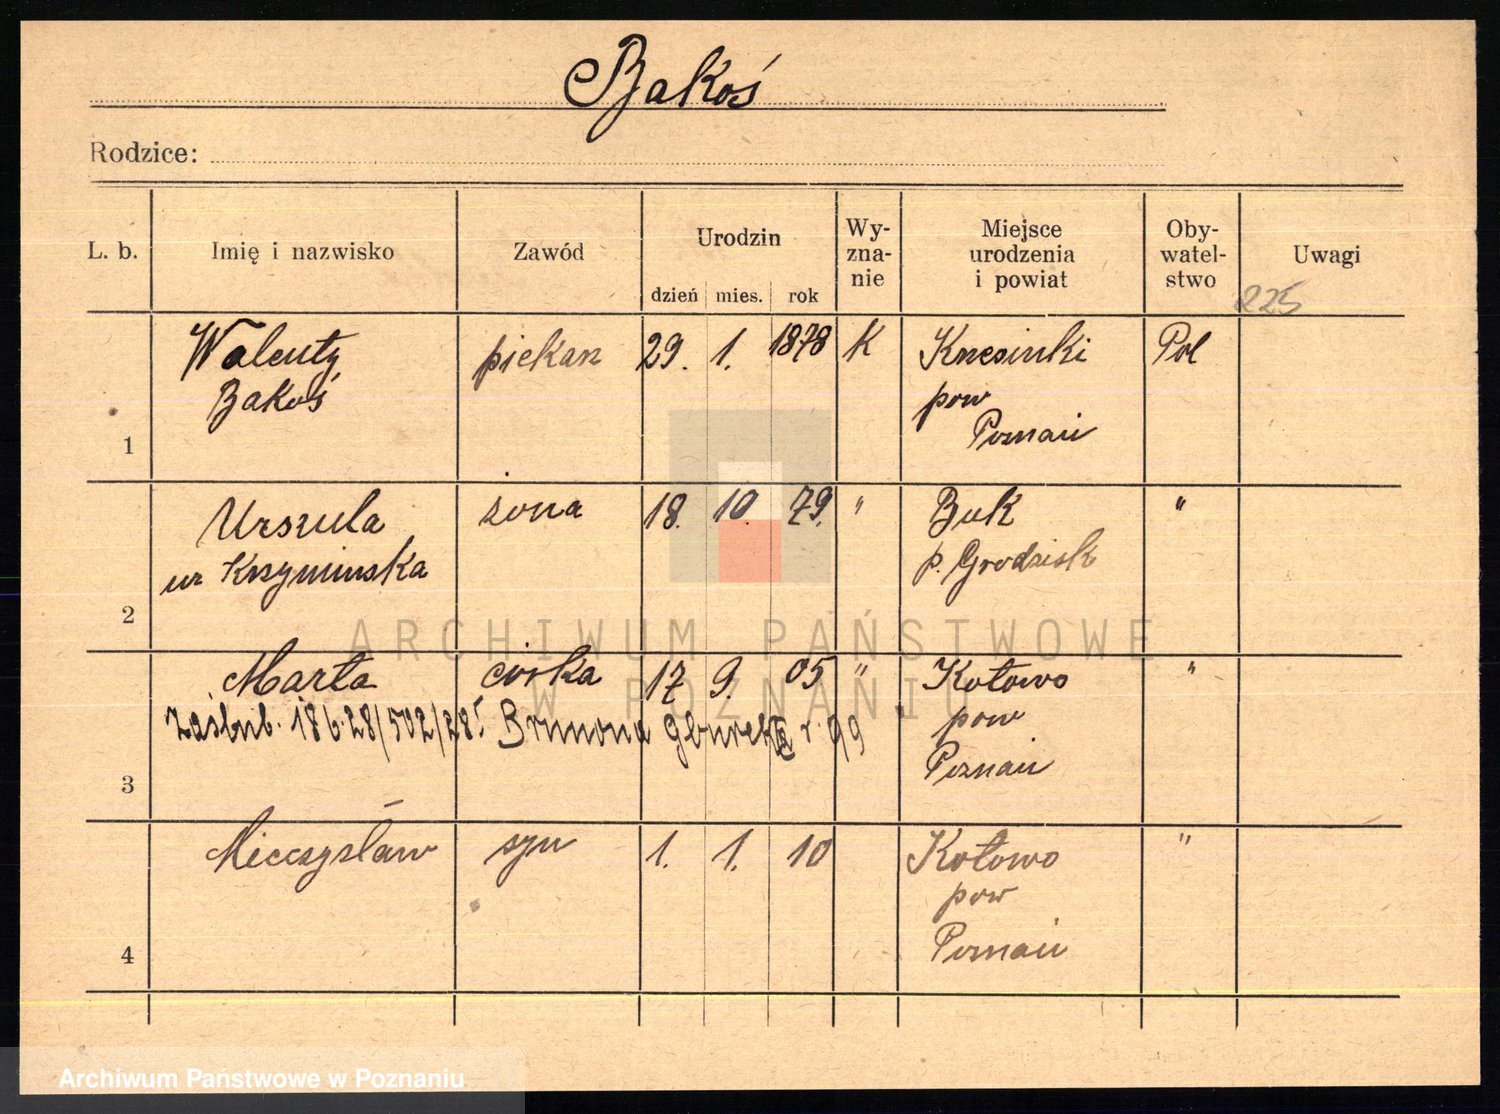 Bakoś
Rodzice:
L. b. Imię i nazwisko Zawód Urodzin dzień mies. rok Wy-zna-nie Miejsce urodzenia i powiat Oby-watel-stwo Uwagi
225
1 Walenty Bakoś piekarz 29. 1. 1878 K pow Poznań Pol
2 Urszula ur Krzyminska żona 18. 10. 79. " Buk p. Grodzisk "
3 Marta córka 17 9. 05 " Kotowo pow Poznań "
zaślub. 18 6.28/502/28 Brunona r. 99
4 Mieczysław syn 1. 1. 10 Kotowo pow Poznań "
ARCHIWUM PAŃSTWOWE
W POZNANIU
Archiwum Państwowe w Poznaniu